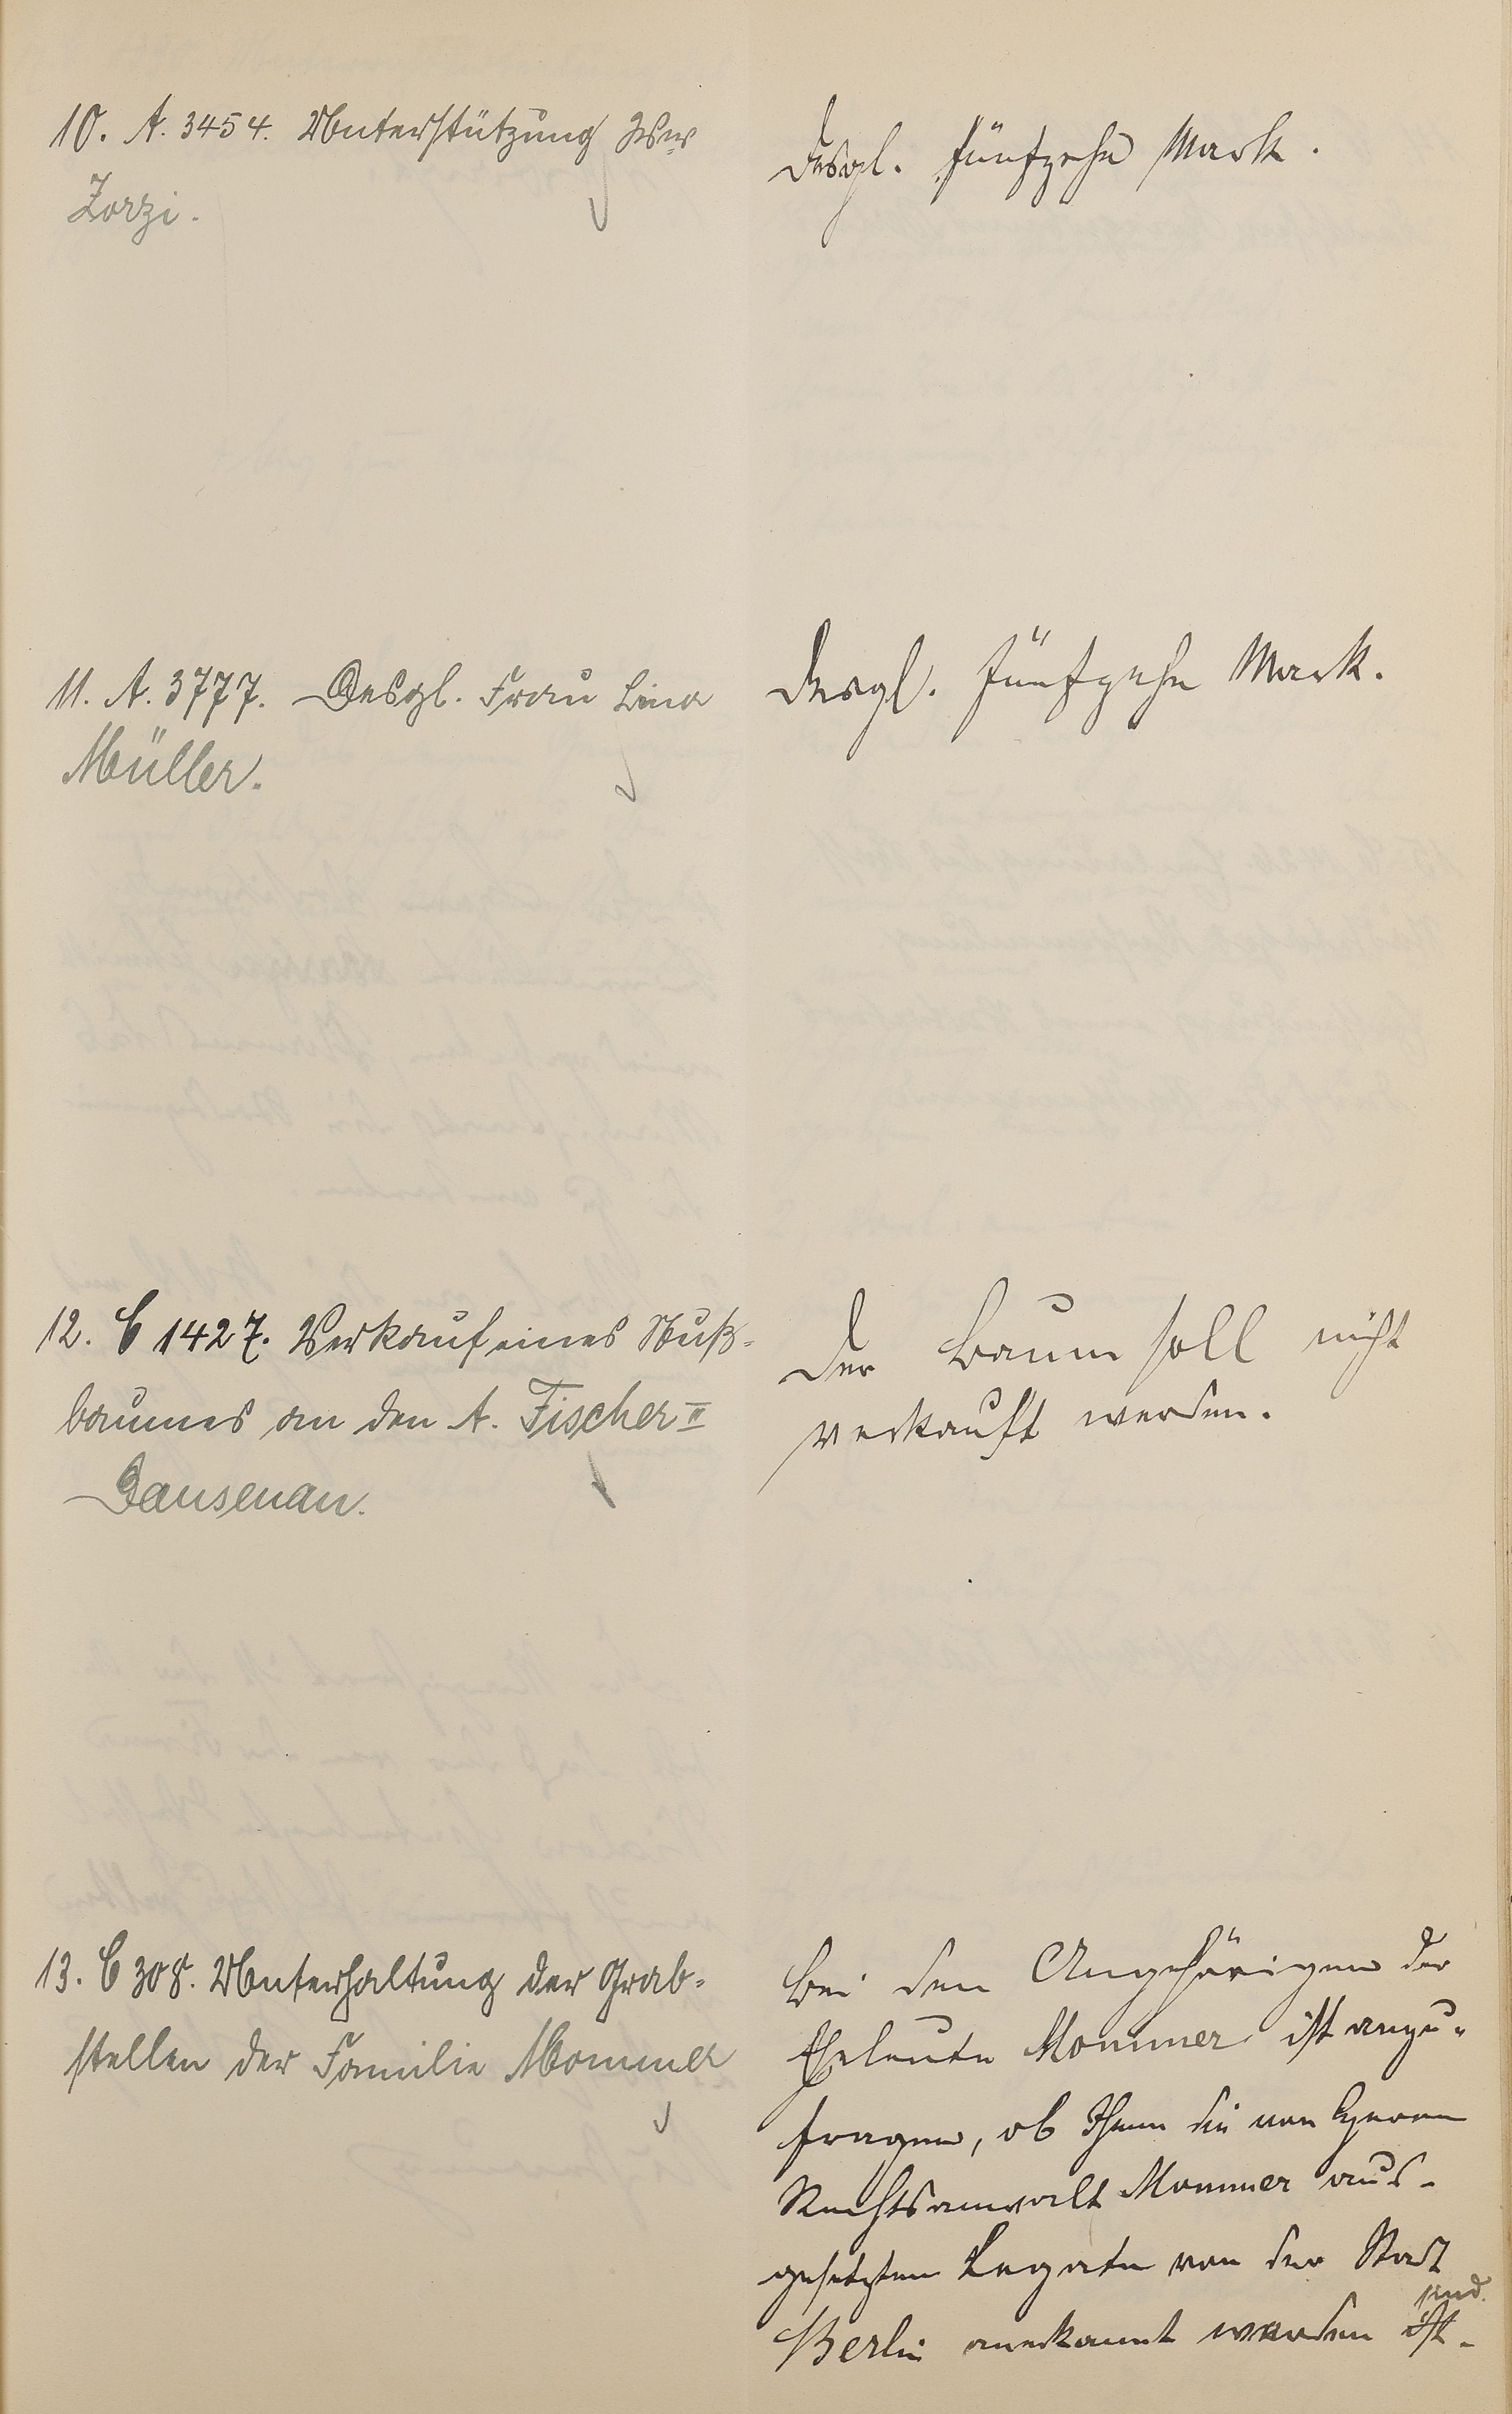 10. A. 3454. Unterstützung Wwe
Zorzi.
Desgl. fünfzehn Mark.
11. A. 3777. Desgl. Frau Lina
Müller.
Desgl. fünfzehn Mark.
12. C 1427. Verkauf eines Nuß-
baumes an den A. Fischer II
Dausenau.
Der Baum soll nicht
verkauft werden.
13. C 308. Unterhaltung der Grab-
stellen der Familie Mommer
Bei den Angehörigen der
Eheleute Mommer ist anzu-
fragen, ob Ihnen die von Herrn
Rechtsanwalt Mommer aus-
gesetzten Legate von der Stadt
sind.
Berlin anerkannt worden ist.